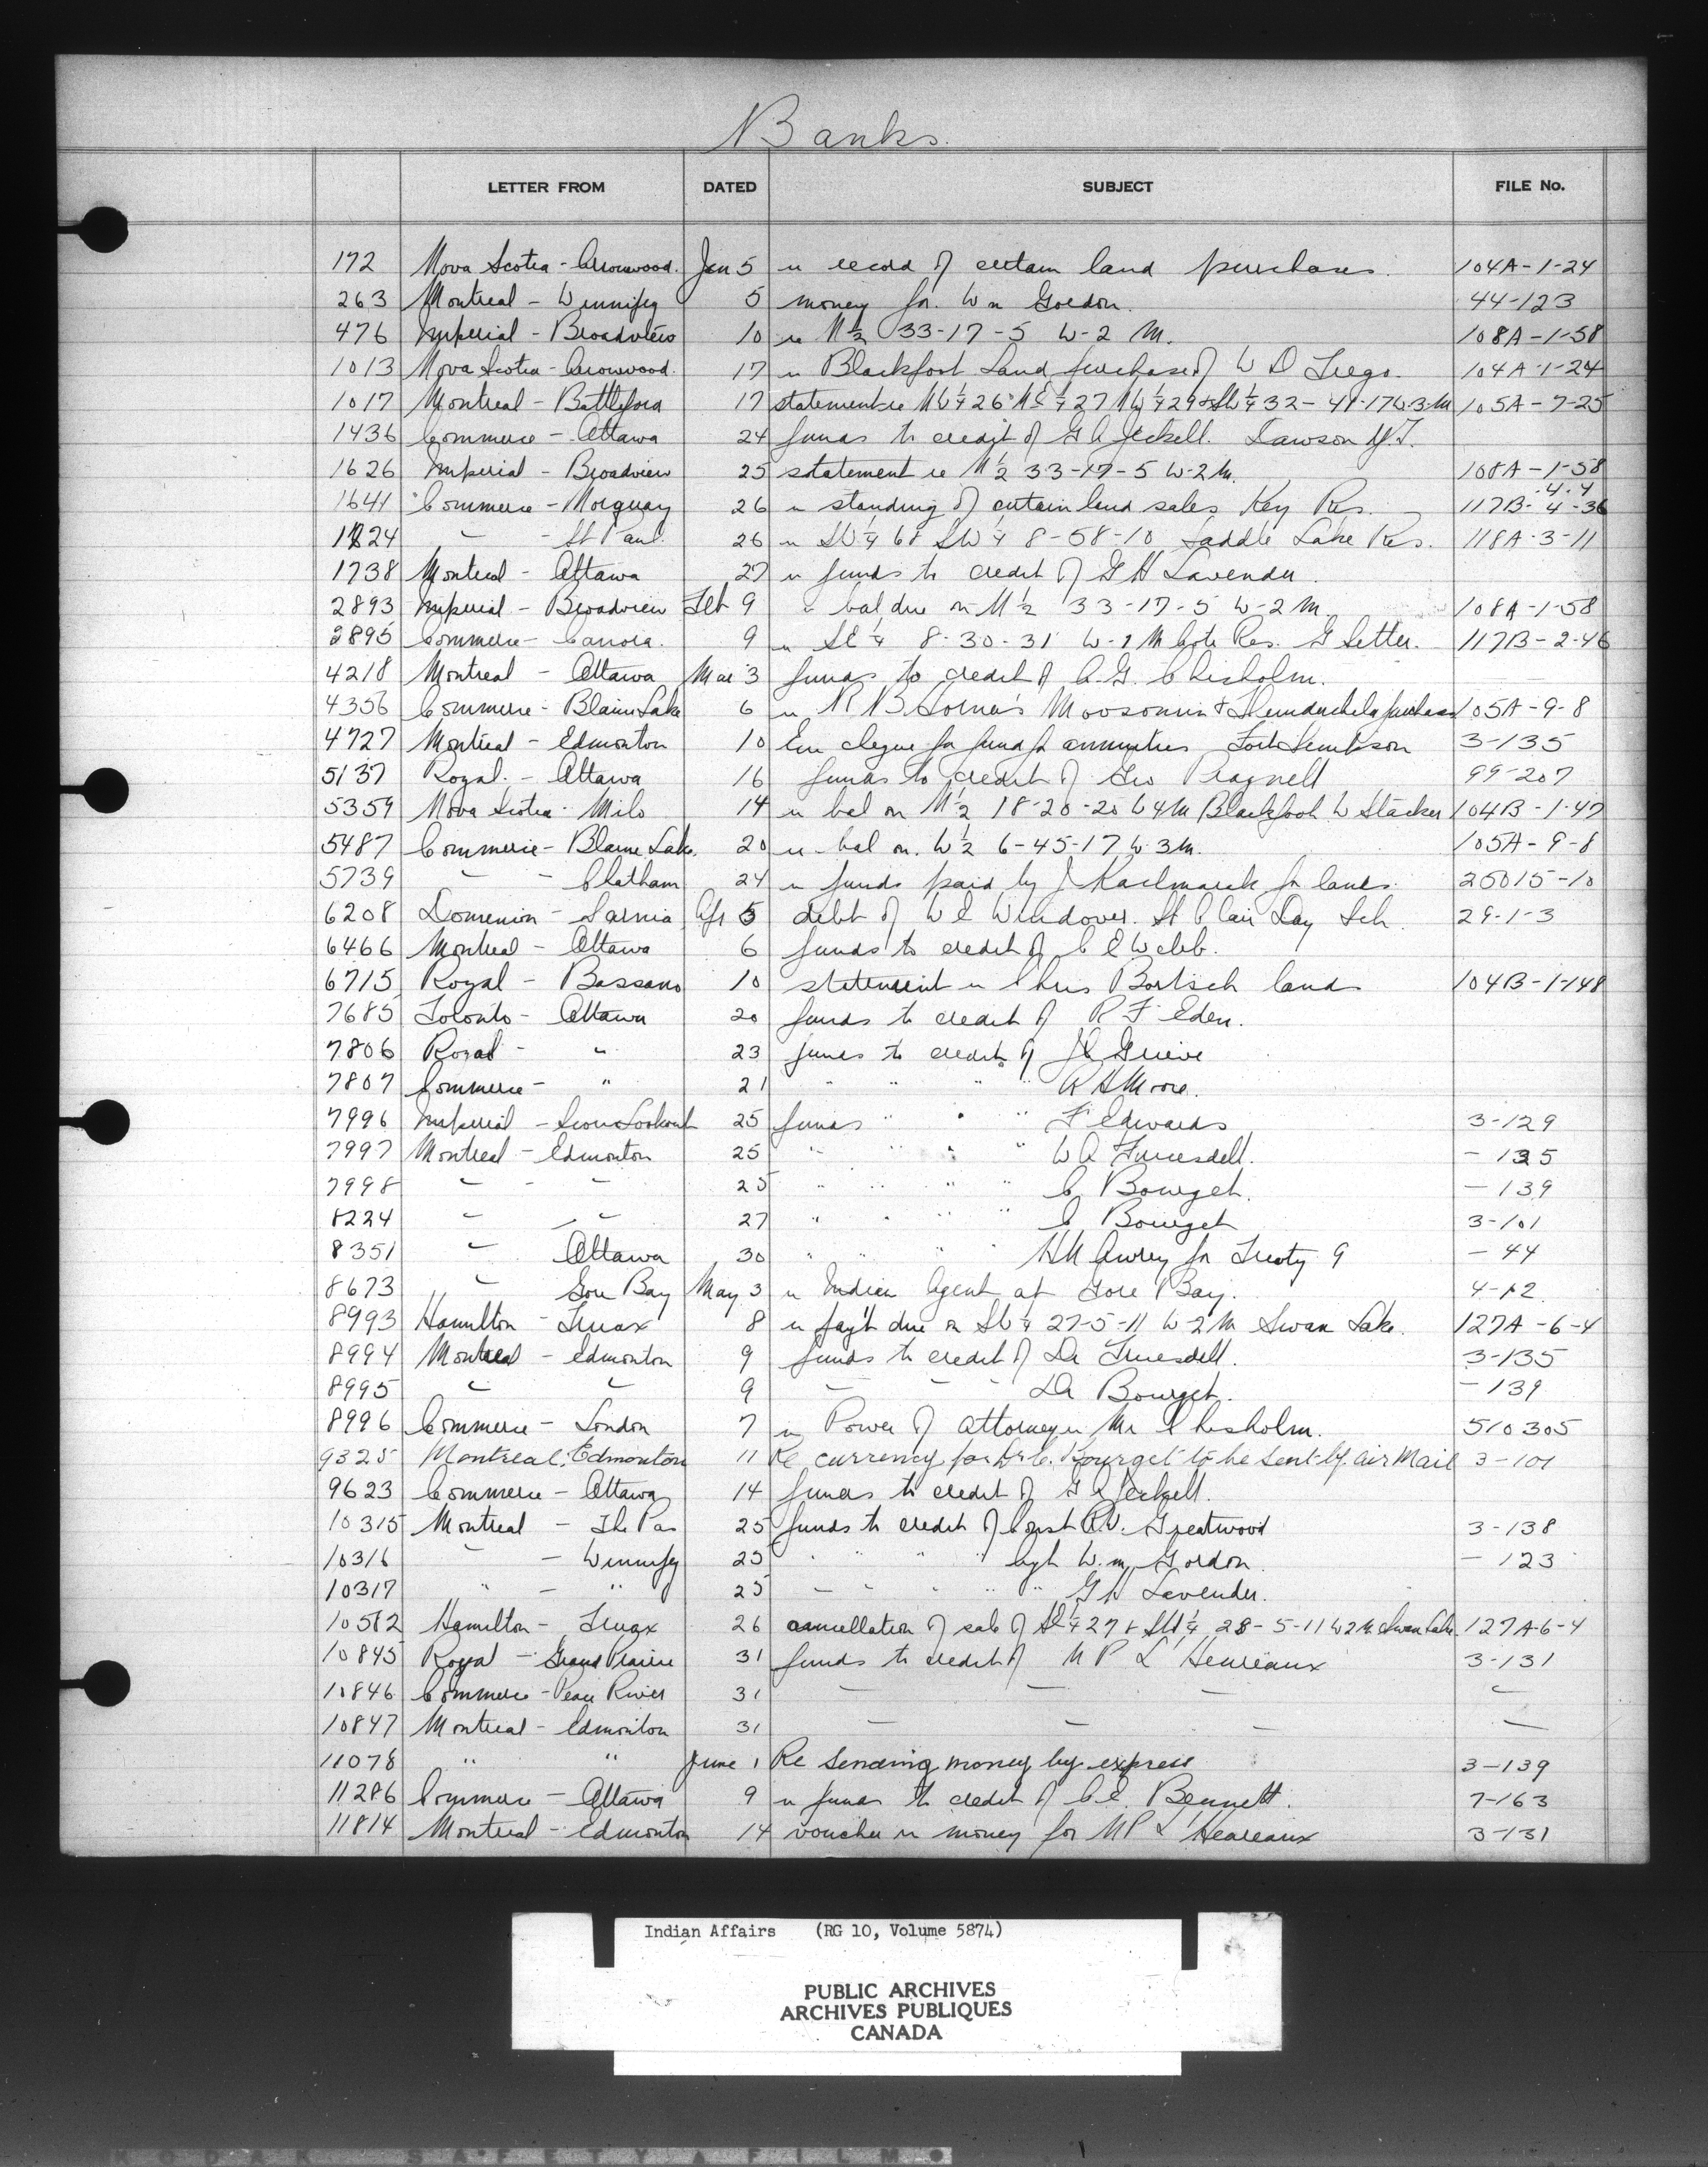 Banks.
LETTER FROM DATED SUBJECT FILE No.
172 Nova Scotia - Arrowwood. Jan 5 re record of certain land purchases. 104A-1-24
263 Montreal - Winnipeg 5 money for Wm Gordon. 44-123
476 Imperial - Broadview 10 re N½ 33-17-5 W-2 M. 108A-1-58
1013 Nova Scotia - Arrowwood. 17 re Blackfoot Land purchase of W D Trego. 104A-1-24
1017 Montreal - Battleford 17 statement re NW¼ 26 NE¼ 27 NW¼ 29 & SW¼ 32-41-17 W.3 M 105A-7-25
1436 Commerce - Ottawa 24 funds to credit of G A Jeckell. Dawson Y.T.
1626 Imperial - Broadview 25 statement re N½ 33-17-5 W-2 M. 108A-1-58
1641 Commerce - Norquay 26 re standing of certain land sales Key Res. 117B-4-36 -4-4
1824 " - St Paul. 26 re SW¼ 6 & SW¼ 8-58-10 Saddle Lake Res. 118A-3-11
1738 Montreal - Ottawa 27 re funds to credit of G H Lavender.
2893 Imperial - Broadview Feb 9 re bal due on N½ 33-17-5 W-2 M. 108A-1-58
2895 Commerce - Canora. 9 re SE¼ 8-30-31 W-1 M Cote Res. G Setter. 117B-2-46
4218 Montreal - Ottawa Mar 3 funds to credit of A.G. Chisholm.
4356 Commerce - Blaine Lake 6 re R B Horner's Moosomin & Thunderchild purchase 105A-9-8
4727 Montreal - Edmonton 10 Enc cheque for funds for annuities Fort Simpson 3-135
5137 Royal. - Ottawa 16 funds to credit of Geo Pragnell 99-207
5359 Nova Scotia - Milo 14 re bal on N½ 18-20-20 W4M Blackfoot W Stacker 104B-1-47
5487 Commerce - Blaine Lake. 20 re bal on. W½ 6-45-17 W.3M. 105A-9-8
5739 " - Chatham 24 re funds paid by J Kaelmarek for lands. 25015-10
6208 Dominion - Sarnia Apr 5 debt of W E Windover. St Clair Day Sch. 29-1-3
6466 Montreal - Ottawa 6 funds to credit of C E Webb.
6715 Royal - Bassano 10 statement re Chris Bartsch lands 104B-1-148
7685 Toronto - Ottawa 20 funds to credit of R F Eden.
7806 Royal - " 23 funds to credit of J C Grieve
7807 Commerce - " 21 " " " " R A Moore.
7996 Imperial - Sioux Lookout 25 funds " " " F Edwards 3-129
7997 Montreal - Edmonton 25 " " " " W A Truesdell. - 135
7998 " - " 25 " " " " C Bourget. - 139
8224 " - " 27 " " " " C Bourget 3-101
8351 " Ottawa 30 " " " " H N Awrey for Treaty 9 - 44
8673 " Gore Bay May 3 re Indian Agent at Gore Bay. 4-12
8993 Hamilton - Truax 8 re pay't due on SW¼ 27-5-11 W-2 M Swan Lake. 127A-6-4
8994 Montreal - Edmonton 9 funds to credit of Dr Truesdell. 3-135
8995 " " 9 " " " Dr Bourget. - 139
8996 Commerce - London 7 re Power of attorney re Mr Chisholm. 510305
9325 Montreal, Edmonton 11 Re currency for Dr C. Bourget to be sent by air Mail 3-101
9623 Commerce - Ottawa 14 funds to credit of G A Jeckell.
10315 Montreal - The Pas 25 funds to credit of Const R.V. Greatwood 3-138
10316 " - Winnipeg 25 " " " " Wm Gordon - 123
10317 " - " 25 " " " " " G H Lavender.
10582 Hamilton - Truax 26 cancellation of sale of SE¼ 27 & SW¼ 28-5-11 W2M. Swan Lake. 127A-6-4
10845 Royal - Grand Prairie 31 funds to credit of N P L'Heureaux 3-131
10846 Commerce - Peace River 31 " " " "
10847 Montreal - Edmonton 31 " " " "
11078 " " June 1 Re Sending money by express 3-139
11286 Commerce - Ottawa 9 re funds to credit of C E. Bennett. 7-163
11814 Montreal - Edmonton 14 voucher re money for N P L'Heureaux 3-131
Indian Affairs (RG 10, Volume 5874)
PUBLIC ARCHIVES
ARCHIVES PUBLIQUES
CANADA
KODAK SAFETY FILM